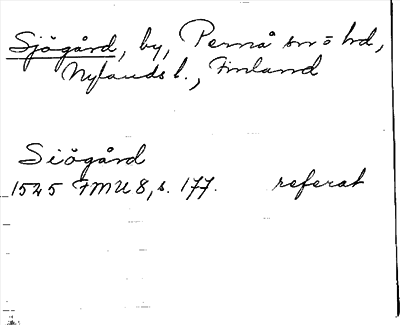 Sjögård, by, Pernå sn = hd,
Nylands l., Finland
Siögård
1525 FMU 8, s. 177. referat